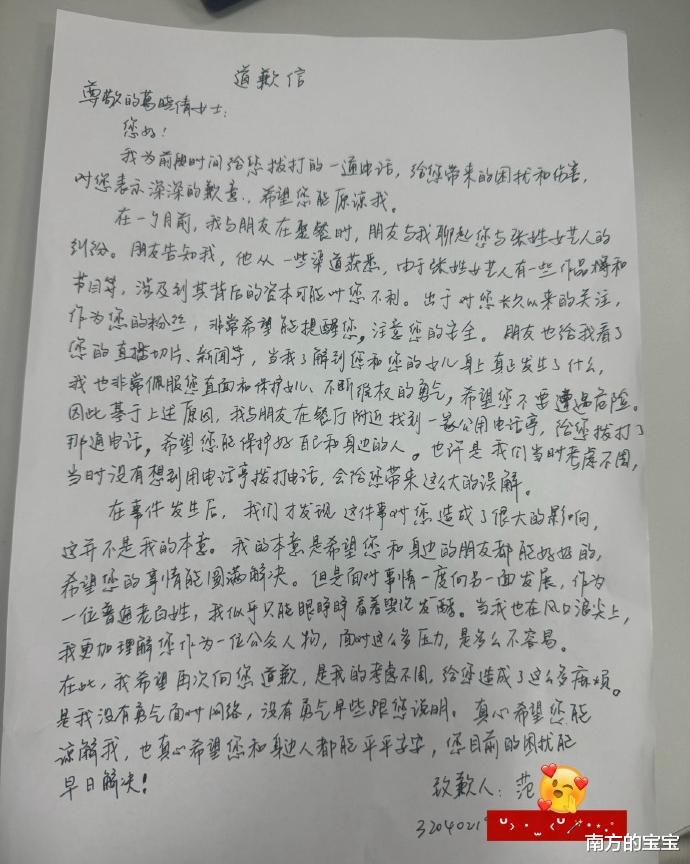 道歉信
尊敬的葛晓倩女士:
您好!
我为前段时间给您拨打的一通电话,给您带来的困扰和伤害,
对您表示深深的歉意,希望您能原谅我。
在一个月前,我与朋友在聚餐时,朋友与我聊起您与张姓女艺人的
纠纷。朋友告知我,他从一些渠道获悉,由于张姓女艺人有一些作品播和
节目等,涉及到其背后的资本可能对您不利。出于对您长久以来的关注,
作为您的粉丝,非常希望能提醒您,注意您的安全。朋友也给我看了
您的直播切片、新闻等,当我了解到您和您的女儿身上真正发生了什么,
我也非常佩服您直面和保护女儿、不断维权的勇气,希望您不要遭遇危险。
因此基于上述原因,我与朋友在餐厅附近找到一家公用电话亭,给您拨打了
那通电话,希望您能保护好自己和身边的人。也许是我们当时考虑不周,
当时没有想到用电话亭拨打电话,会给您带来这么大的误解。
在事件发生后,我们才发现这件事对您造成了很大的影响,
这并不是我的本意。我的本意是希望您和身边的朋友都能好好的,
希望您的事情能圆满解决。但是面对事情一度向另一面发展,作为
一位普通老百姓,我似乎只能眼睁睁看着舆论发酵。当我也在风口浪尖上,
我更加理解您作为一位公众人物,面对这么多压力,是多么不容易。
在此,我希望再次向您道歉,是我的考虑不周,给您造成了这么多麻烦。
是我没有勇气面对网络,没有勇气早些跟您说明。真心希望您能
谅解我,也真心希望您和身边人都能平平安安,您目前的困扰能
早日解决!
致歉人:范
3204021
南方的宝宝